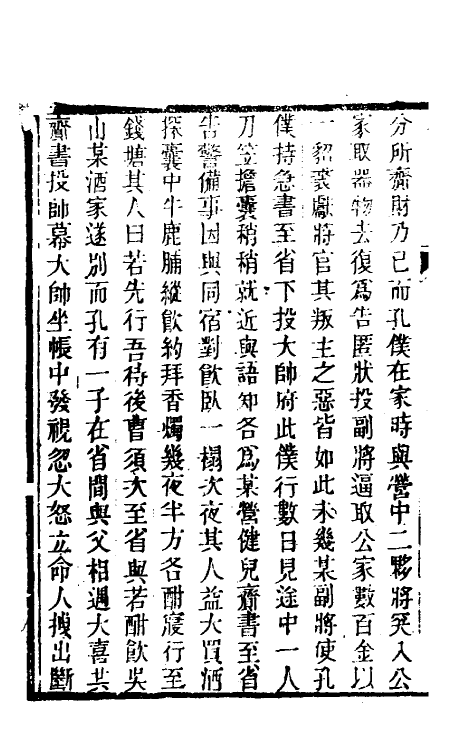 分所齎財乃已而孔僕在家時與營中二夥將突入公
家取器物去復爲告匿狀投副將逼取公家數百金以
一貂裘獻將官其叛主之惡皆如此未幾某副將使孔
僕持急書至省下投大帥府此僕行數日見途中一人
刀笠擔囊稍稍就近與語知各爲某營健兒齎書至省
告警備事因與同宿對飮臥一榻次夜其人益大買酒
探囊中牛鹿脯縱飮約拜香燭幾夜半方各酣寢行至
錢塘其人曰若先行吾待後曹須次至省與若酣飮吳
山某酒家遂別而孔有一子在省間與父相遇大喜共
齎書投帥幕大帥坐帳中發視忽大怒立命人拽出斷